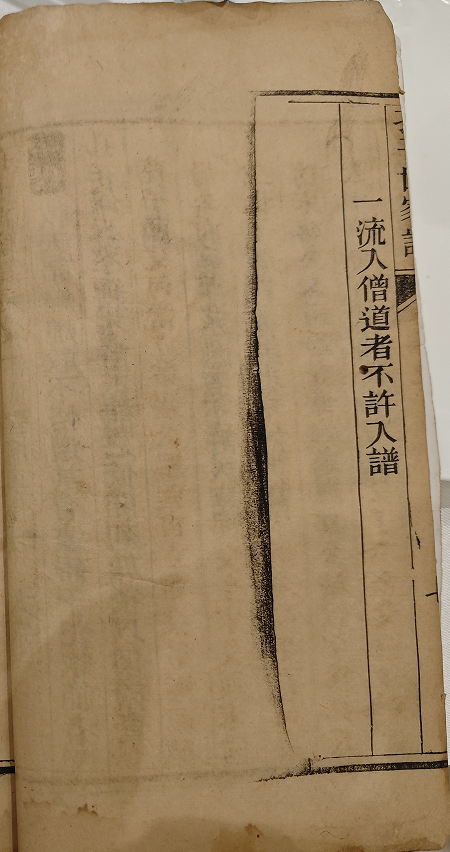 一流入僧道者不許入譜